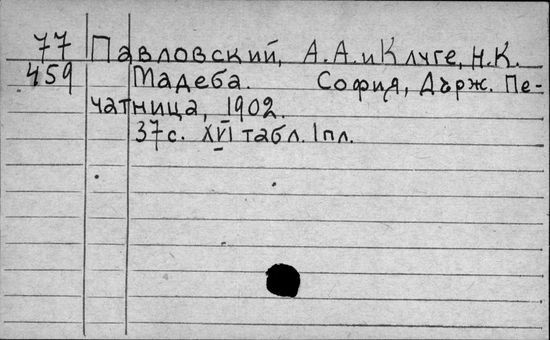 77 Павловский, А.А. и Клуге, Н.К.
459 Мадеба. София, Държ. Пе-
чатница, 1902.
37с. XVI табл. 1пл.